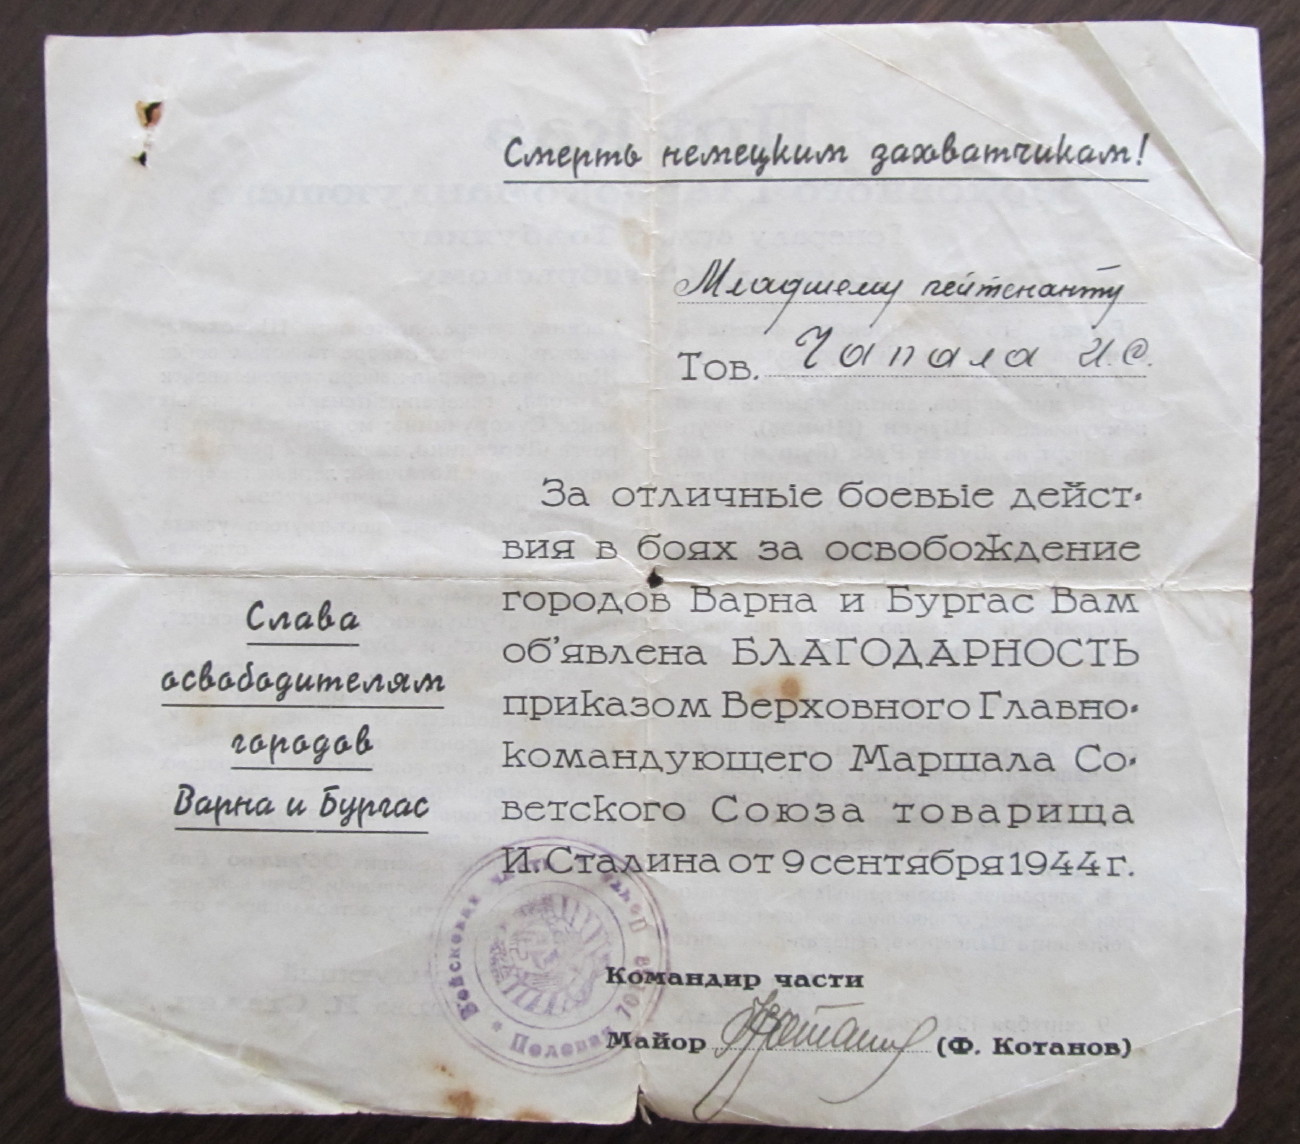 Смерть немецким захватчикам!
Младшему лейтенанту
Тов. Чапала И.С.
За отличные боевые дейст-
вия в боях за освобождение
городов Варна и Бургас Вам
об'явлена БЛАГОДАРНОСТЬ
приказом Верховного Главно-
командующего Маршала Со-
ветского Союза товарища
И. Сталина от 9 сентября 1944 г.
Слава
освободителям
городов
Варна и Бургас
Войсковая часть
Полевая
Командир части
Майор (Ф. Котанов)